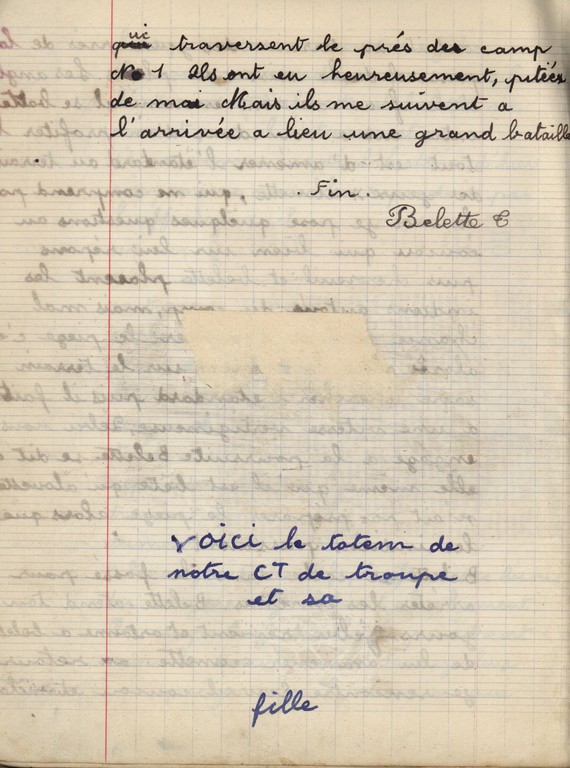 qui traversent le prés des camp
No 1 Ils ont eu heureusement, pitées
de moi Mais ils me suivent a
l'arrivée a lieu une grand bataille
. Fin .
Belette C
VOICI le totem de
notre CT de troupe
et sa
fille